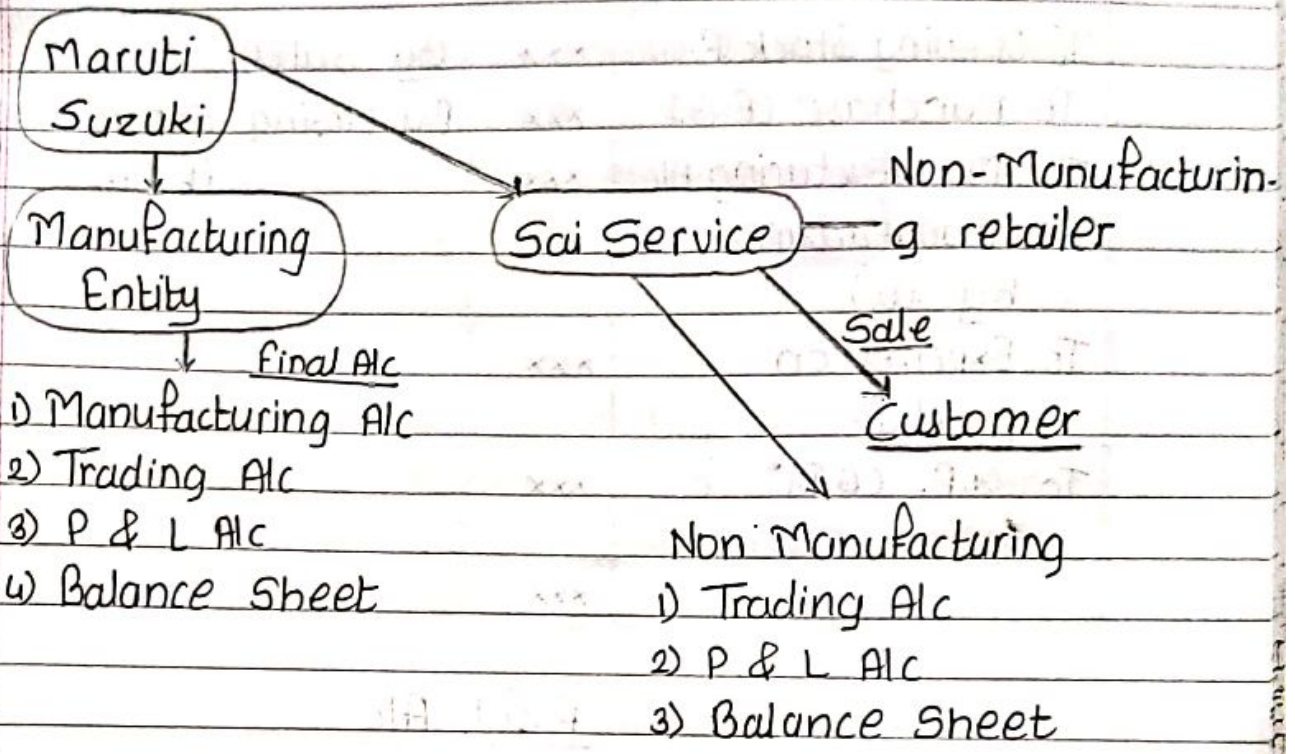 Maruti
Suzuki
Manufacturing
Entity
Sai Service
Non-Manufacturin-
g retailer
Sale
Customer
Final A/c
1) Manufacturing A/c
2) Trading A/c
3) P & L A/c
4) Balance Sheet
Non Manufacturing
1) Trading A/c
2) P & L A/c
3) Balance Sheet